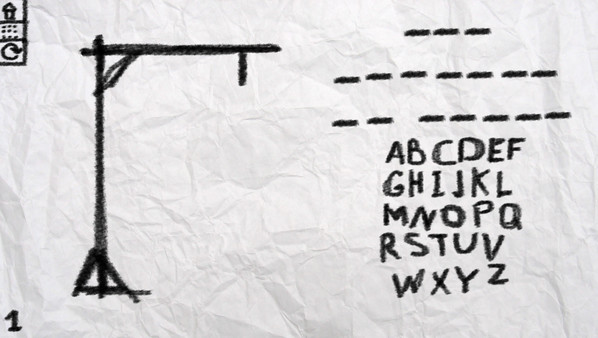 ABCDEF
GHIJKL
MNOPQ
RSTUV
WXYZ
1